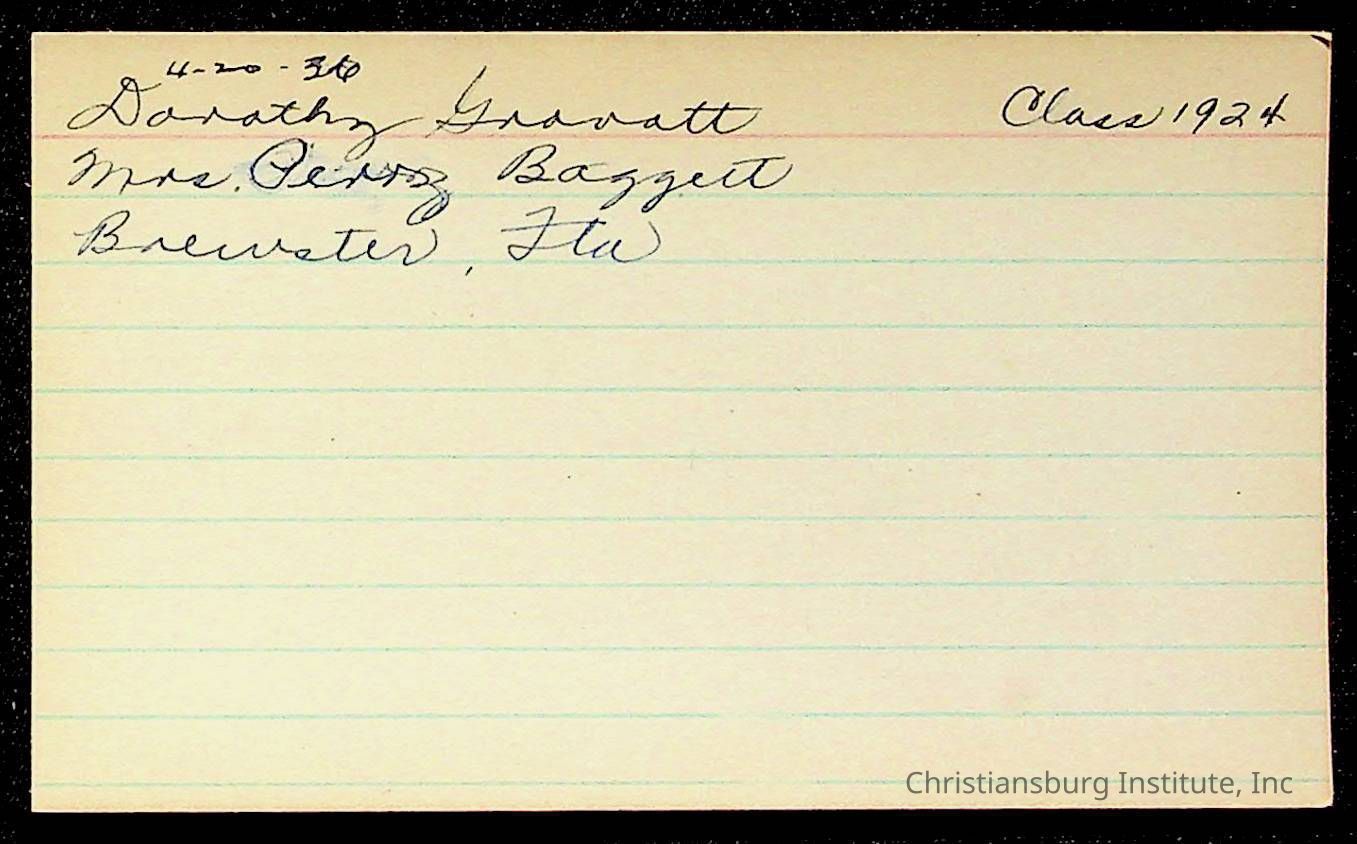 4-20-36
Dorothy Gravatt Class 1924
Mrs. Perry Baggett
Brewster, Fla
Christiansburg Institute, Inc